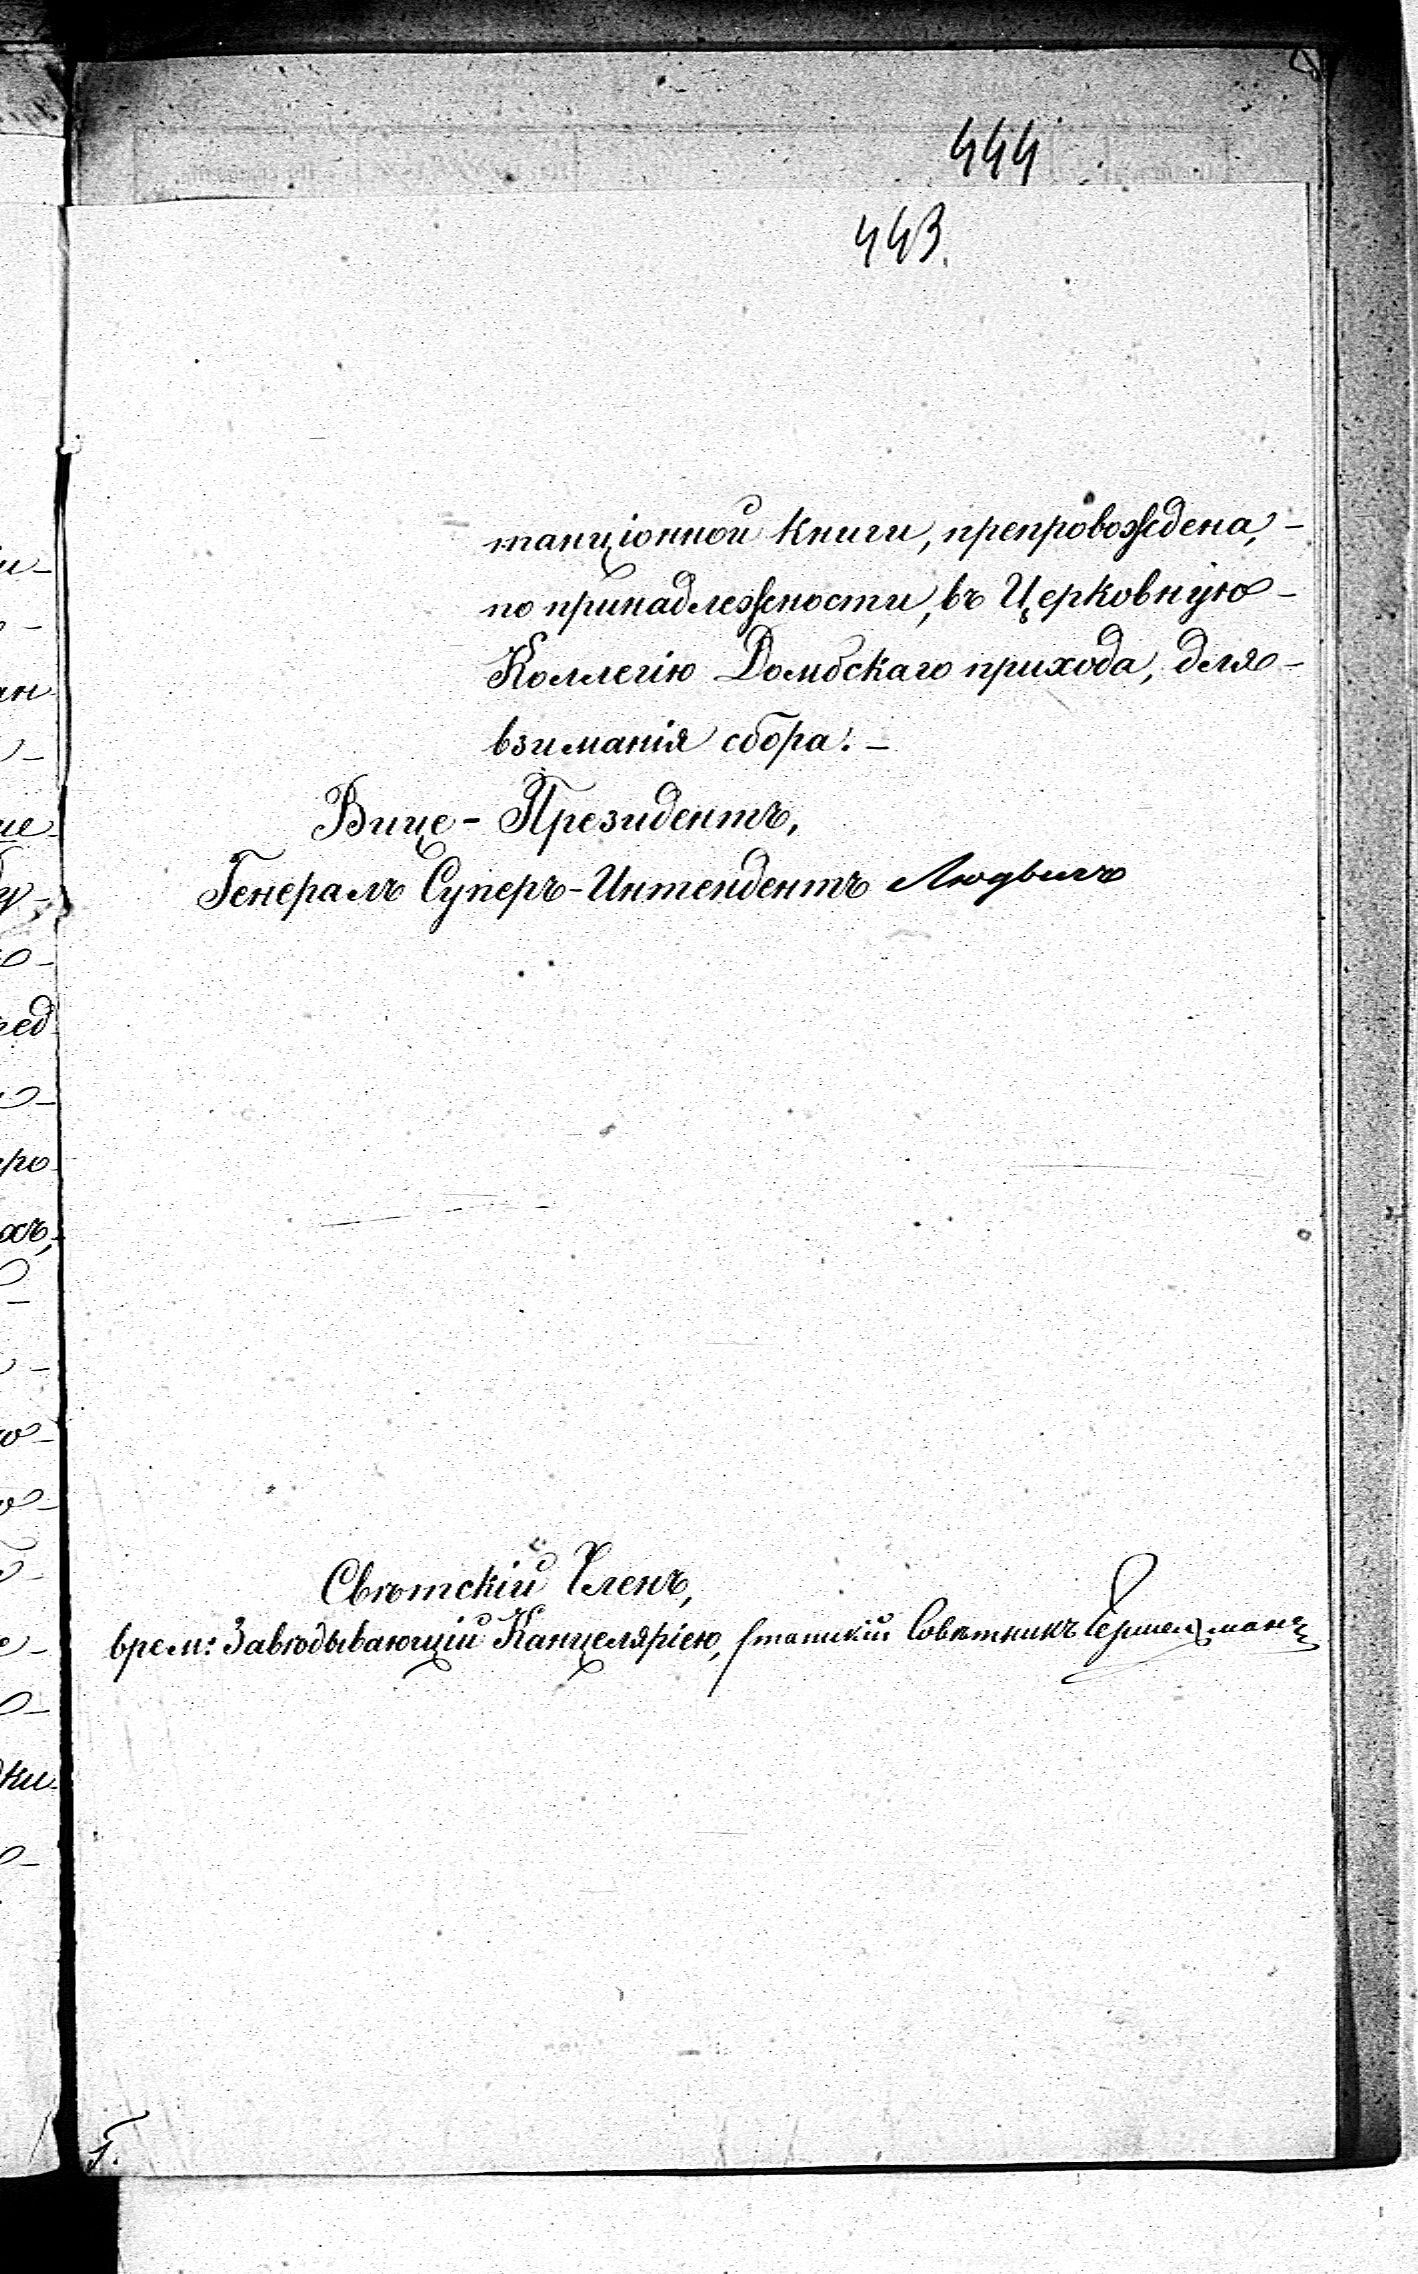 444
443.
танціонной книги, препровождена, -
по принадлежности, въ Церковную -
Коллегію Домбскаго прихода, для -
взиманія сбора. -
Вице - Президентъ,
Генералъ Суперъ-Интендентъ Людвигъ
Свѣтскій Членъ,
врем: Завѣдывающій Канцеляріею, Статскій Совѣтникъ
Г.